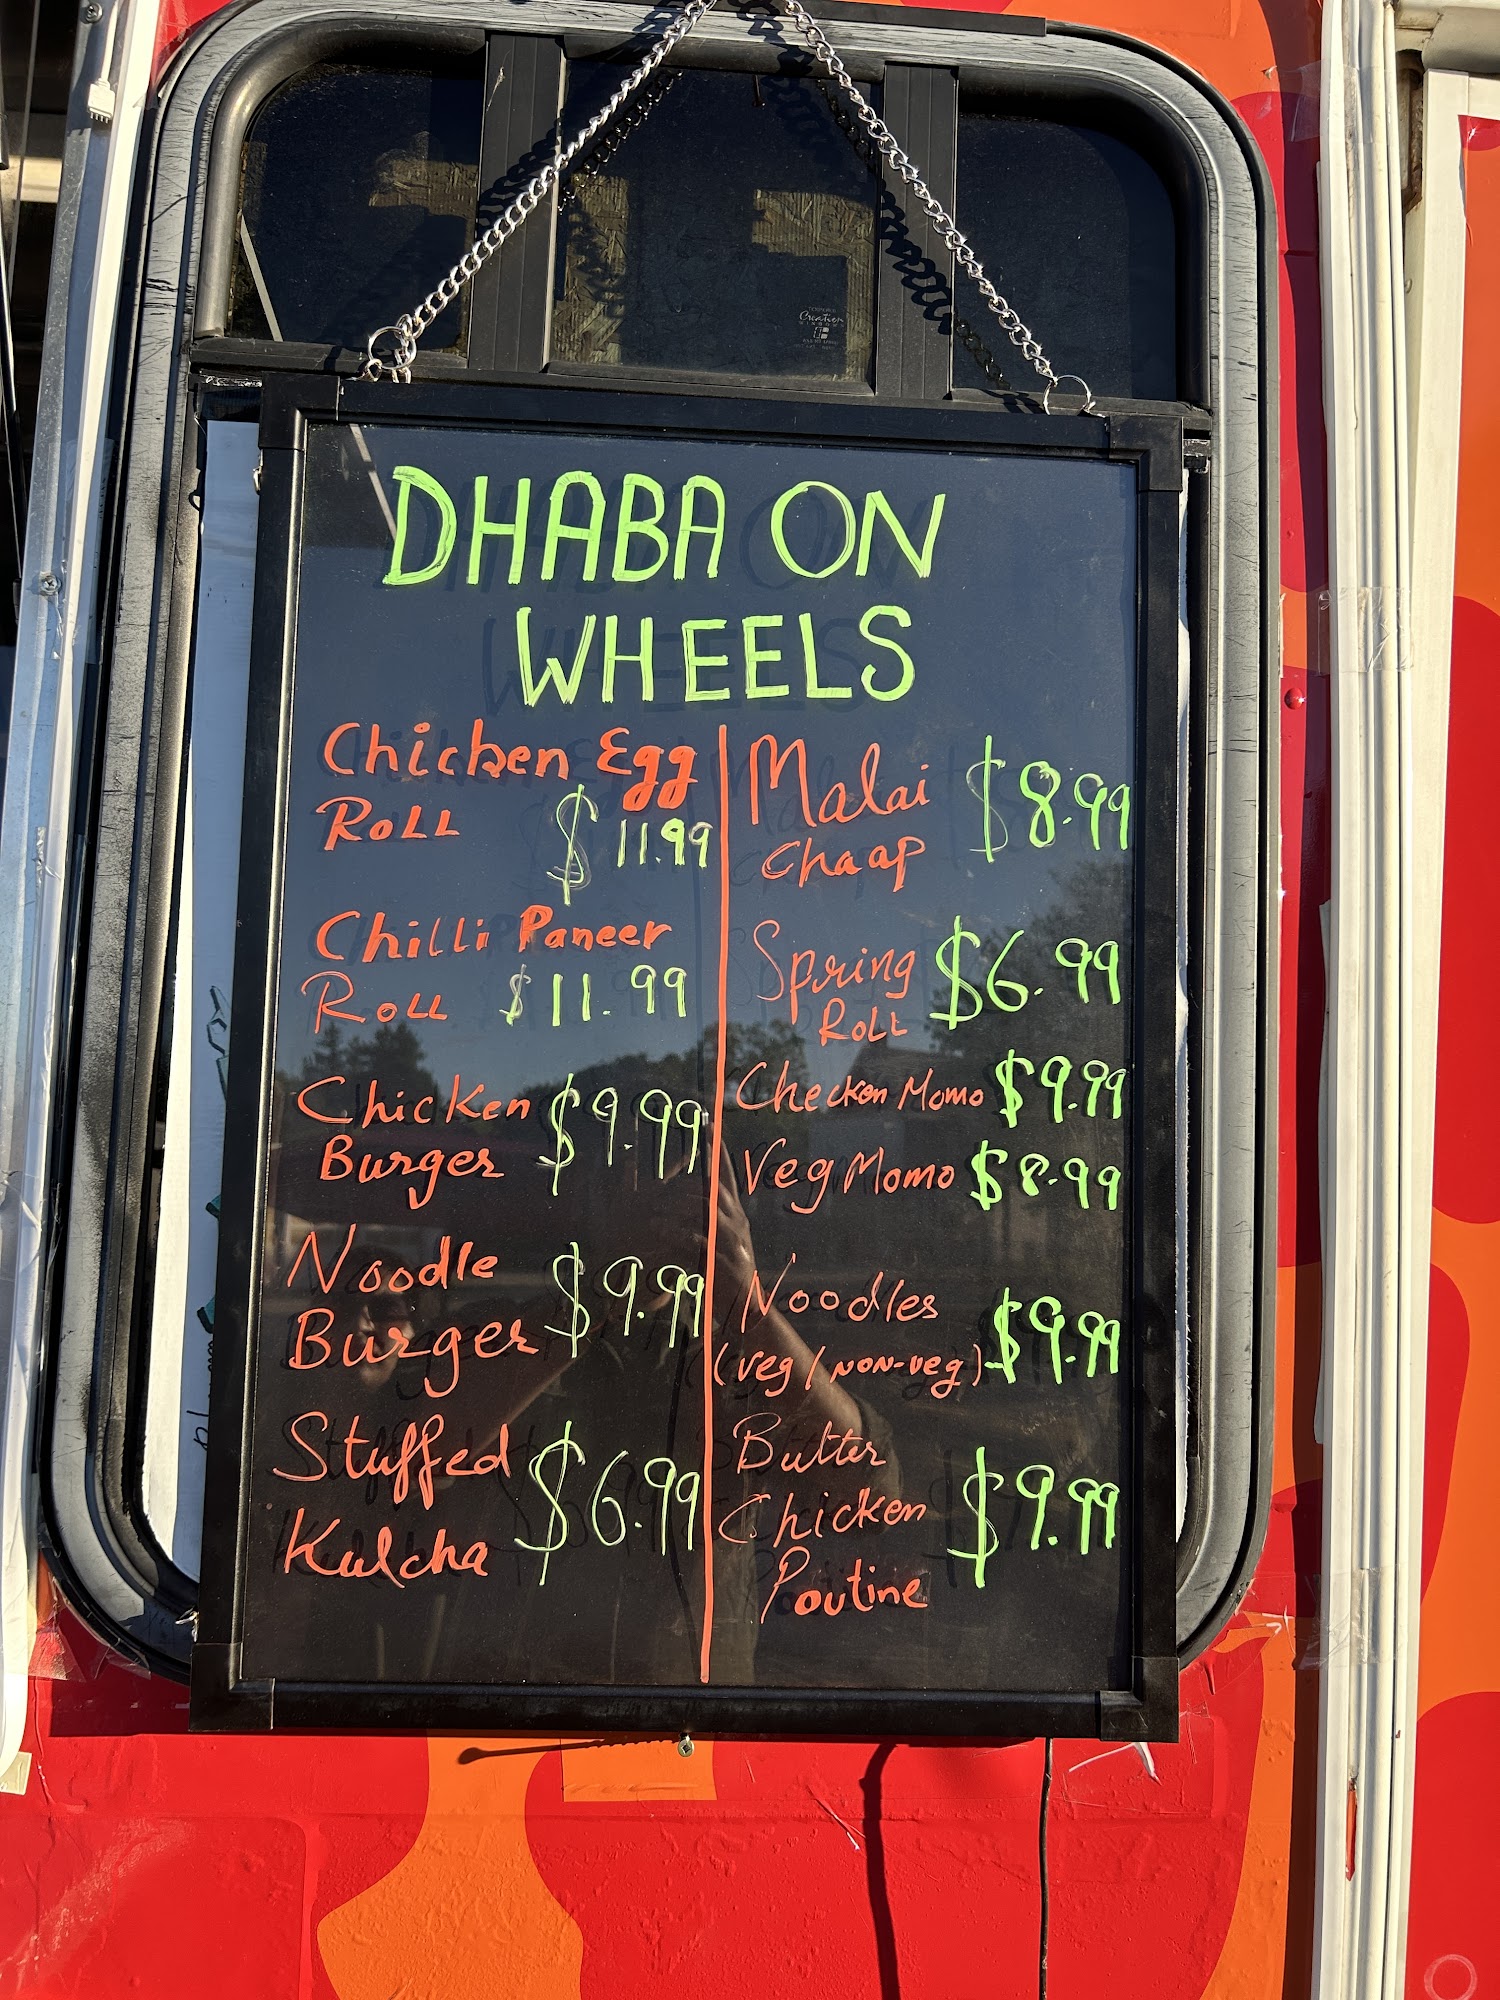 DHABA ON
WHEELS
Chicken Egg
ROLL $11.99
Chilli Paneer
ROLL $11.99
Chicken
Burger $9.99
Noodle
Burger $9.99
Stuffed
Kulcha $6.99
Malai $8.99
Chaap
Spring $6.99
ROLL
Checken Momo $9.99
Veg Momo $8.99
Noodles
(veg/NON-veg) $9.99
Butter
Chicken $9.99
Poutine
Creation
WINDOW